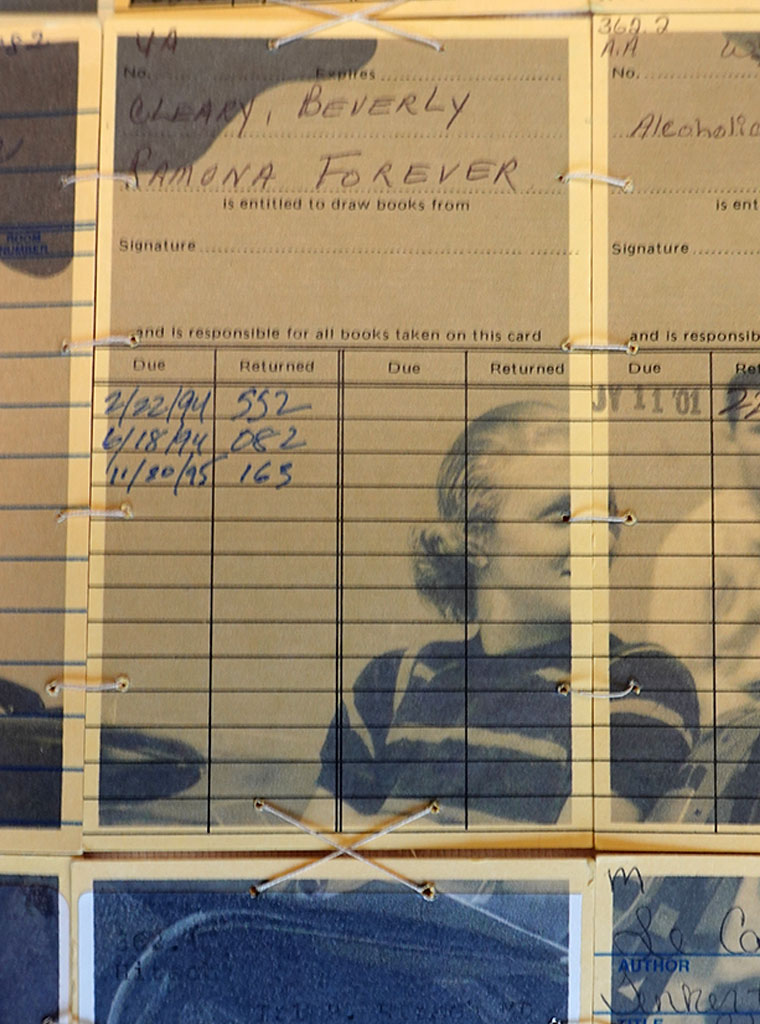 YA
No. Expires
CLEARY, BEVERLY
RAMONA FOREVER
is entitled to draw books from
Signature
and is responsible for all books taken on this card
Due Returned Due Returned
2/22/94 552
6/18/94 082
11/30/95 163
ROOM
NUMBER
362.2
A.A
No.
Alcoholic
is ent
Signature
and is responsib
Due Ret
JY 11 '01 22
M
Le Ca
AUTHOR
TITLE